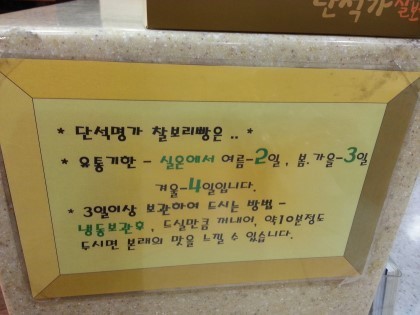 단석가
* 단석명가 찰보리빵은 .. *
* 유통기한 - 실온에서 여름-2일, 봄.가을-3일
겨울-4일입니다.
* 3일이상 보관하여 드시는 방법 -
냉동보관후, 드실만큼 꺼내어, 약10분정도
두시면 본래의 맛을 느낄 수 있습니다.